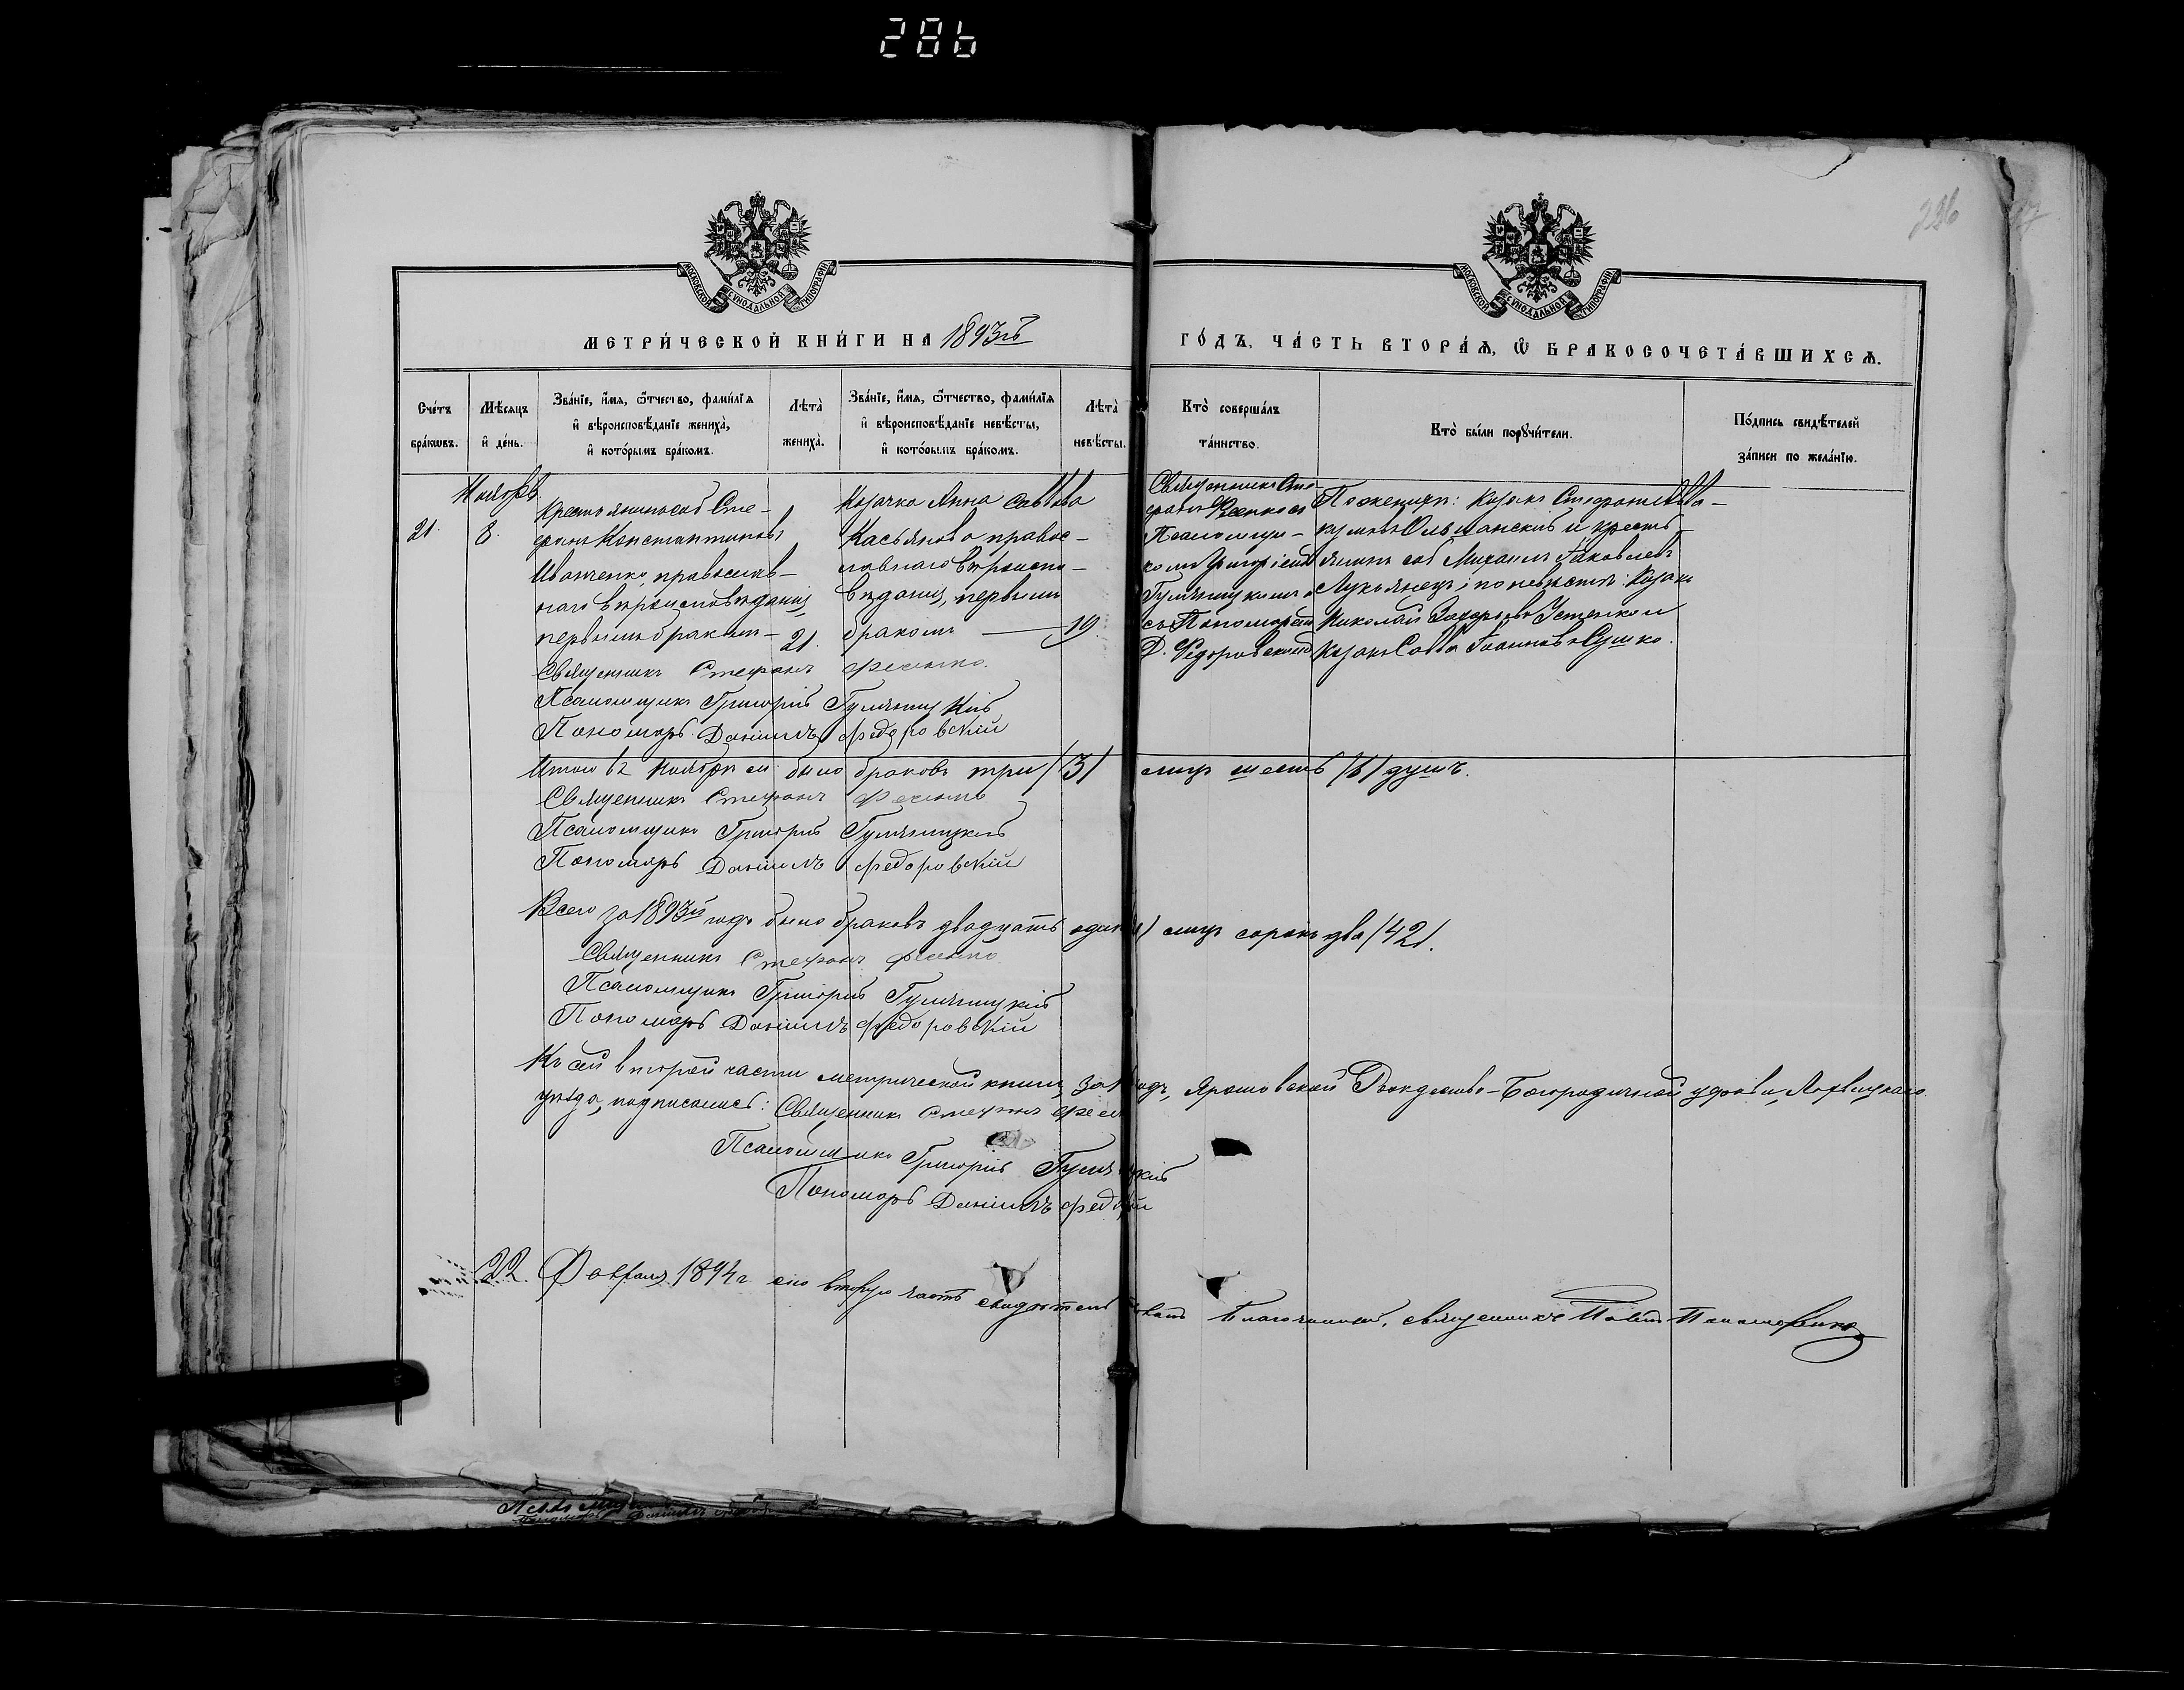 286
226
МОСКОВСКОЙ СѴНОДАЛЬНОЙ ТИПОГРАФІИ
МОСКОВСКОЙ СѴНОДАЛЬНОЙ ТИПОГРАФІИ
МЕТРИ́ЧЕСКОЙ КНИ́ГИ НА 1893й
ГО́ДЪ, ЧА́СТЬ ВТОРА́Ѧ, Ѽ БРАКОСОЧЕТА́ВШИХСѦ.
Сче́тъ бра́кѡвъ.
Мѣ́сяцъ и҆ де́нь.
Зва́нїе, и҆́мя, ѻ҆́тчество, фами́лїя
и҆ вѣроисповѣ́данїе жениха̀,
и҆ кото́рымъ бра́комъ.
Лѣта̀ жениха̀.
Зва́нїе, и҆́мя, ѻ҆́тчество, фами́лїя
и҆ вѣроисповѣ́данїе невѣ́сты,
и҆ кото́рымъ бра́комъ.
Лѣта̀ невѣ́сты.
Кто̀ соверша́лъ та́инство.
Кто̀ бы́ли порꙋчи́тели.
По́дпись свидѣ́телей
за́писи по жела́нїю.
Ноябрь
21. 8.
Крестьянинъ соб Сте-
фанъ Константиновъ
Иванченко, православ-
наго вѣроисповѣданія
первымъ бракомъ — 21.
Козачка Анна Саввова
Касьянова правос-
лавнаго вѣроиспо-
вѣданія, первымъ
бракомъ — 19.
Священникъ Сте-
фанъ Фесенко съ
Псаломщи-
комъ Григоріемъ
Гулиницкимъ и
съ Пономаремъ
Д. Федоровскимъ
По женихѣ: Козакъ Стефанъ
Ольшанскій и кресть-
янинъ соб Михаилъ Іаковлевъ
Лукьянецъ; по невѣстѣ: Козакъ
Николай Захарьевъ Устенко и
Козакъ Савва Іоанновъ Сушко.
Священникъ Стефанъ Фесенко.
Псаломщикъ Григорій Гулиницкій
Пономарь Даніилъ Федоровскій
Итого въ Ноябрѣ м. было браковъ три /3/ лицъ шесть /6/ душъ.
Священникъ Стефанъ Фесенко
Псаломщикъ Григорій Гулиницкій
Пономарь Даніилъ Федоровскій
Всего за 1893й годъ было браковъ двадцать одинъ лицъ сорокъ два /42/.
Священникъ Стефанъ Фесенко
Псаломщикъ Григорій Гулиницкій
Пономарь Даніилъ Федоровскій
Къ сей второй части метрической книги, за годъ, Ярошовской Рождество-Богородичной церкви, Лохвицкаго
уѣзда, подписались: Священникъ Стефанъ
Псаломщикъ Григорій
Пономарь Даніилъ
22. Февраля 1894 г. сію вторую часть свидѣтельствовалъ Благочинный, священникъ